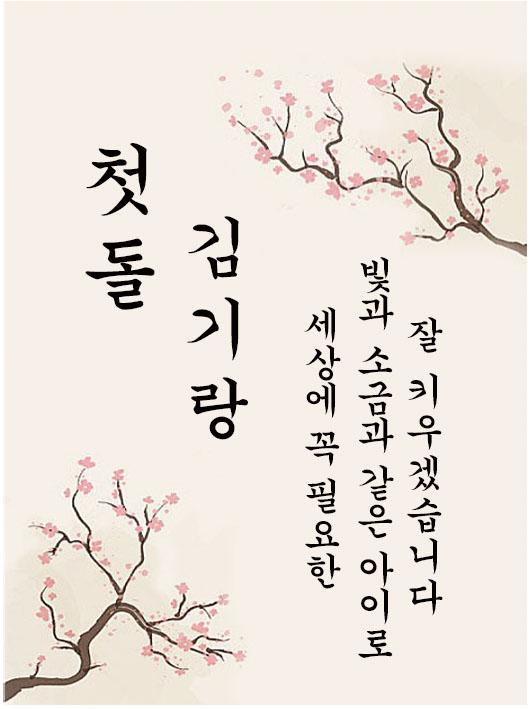 첫돌
김기랑
세상에 꼭 필요한
빛과 소금과 같은 아이로
잘 키우겠습니다